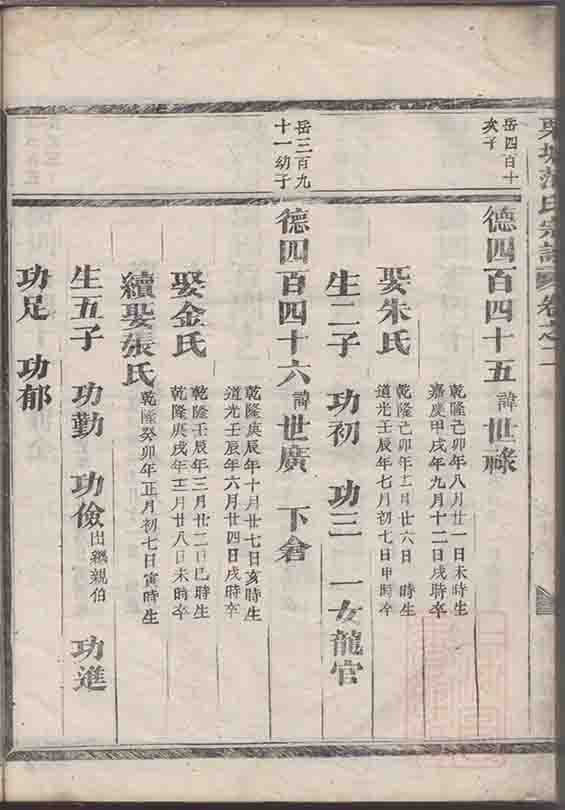 城 氏宗譜 卷之二
岳四百十
次子
德四百四十五 諱世祿
乾隆己卯年八月廿一日未時生
嘉慶甲戌年九月十二日戌時卒
娶朱氏
乾隆己卯年十二月廿六日 時生
道光壬辰年七月初七日甲時卒
生二子 功初 功三 一女龍官
岳三百九
十一幼子
德四百四十六 諱世廣 下倉
乾隆庚辰年十月廿七日亥時生
道光壬辰年六月廿四日戌時卒
娶金氏
乾隆壬辰年三月廿二日巳時生
乾隆庚戌年十二月廿八日未時卒
續娶張氏
乾隆癸卯年正月初七日寅時生
生五子 功勤 功儉 出繼親伯 功進
功足 功郁